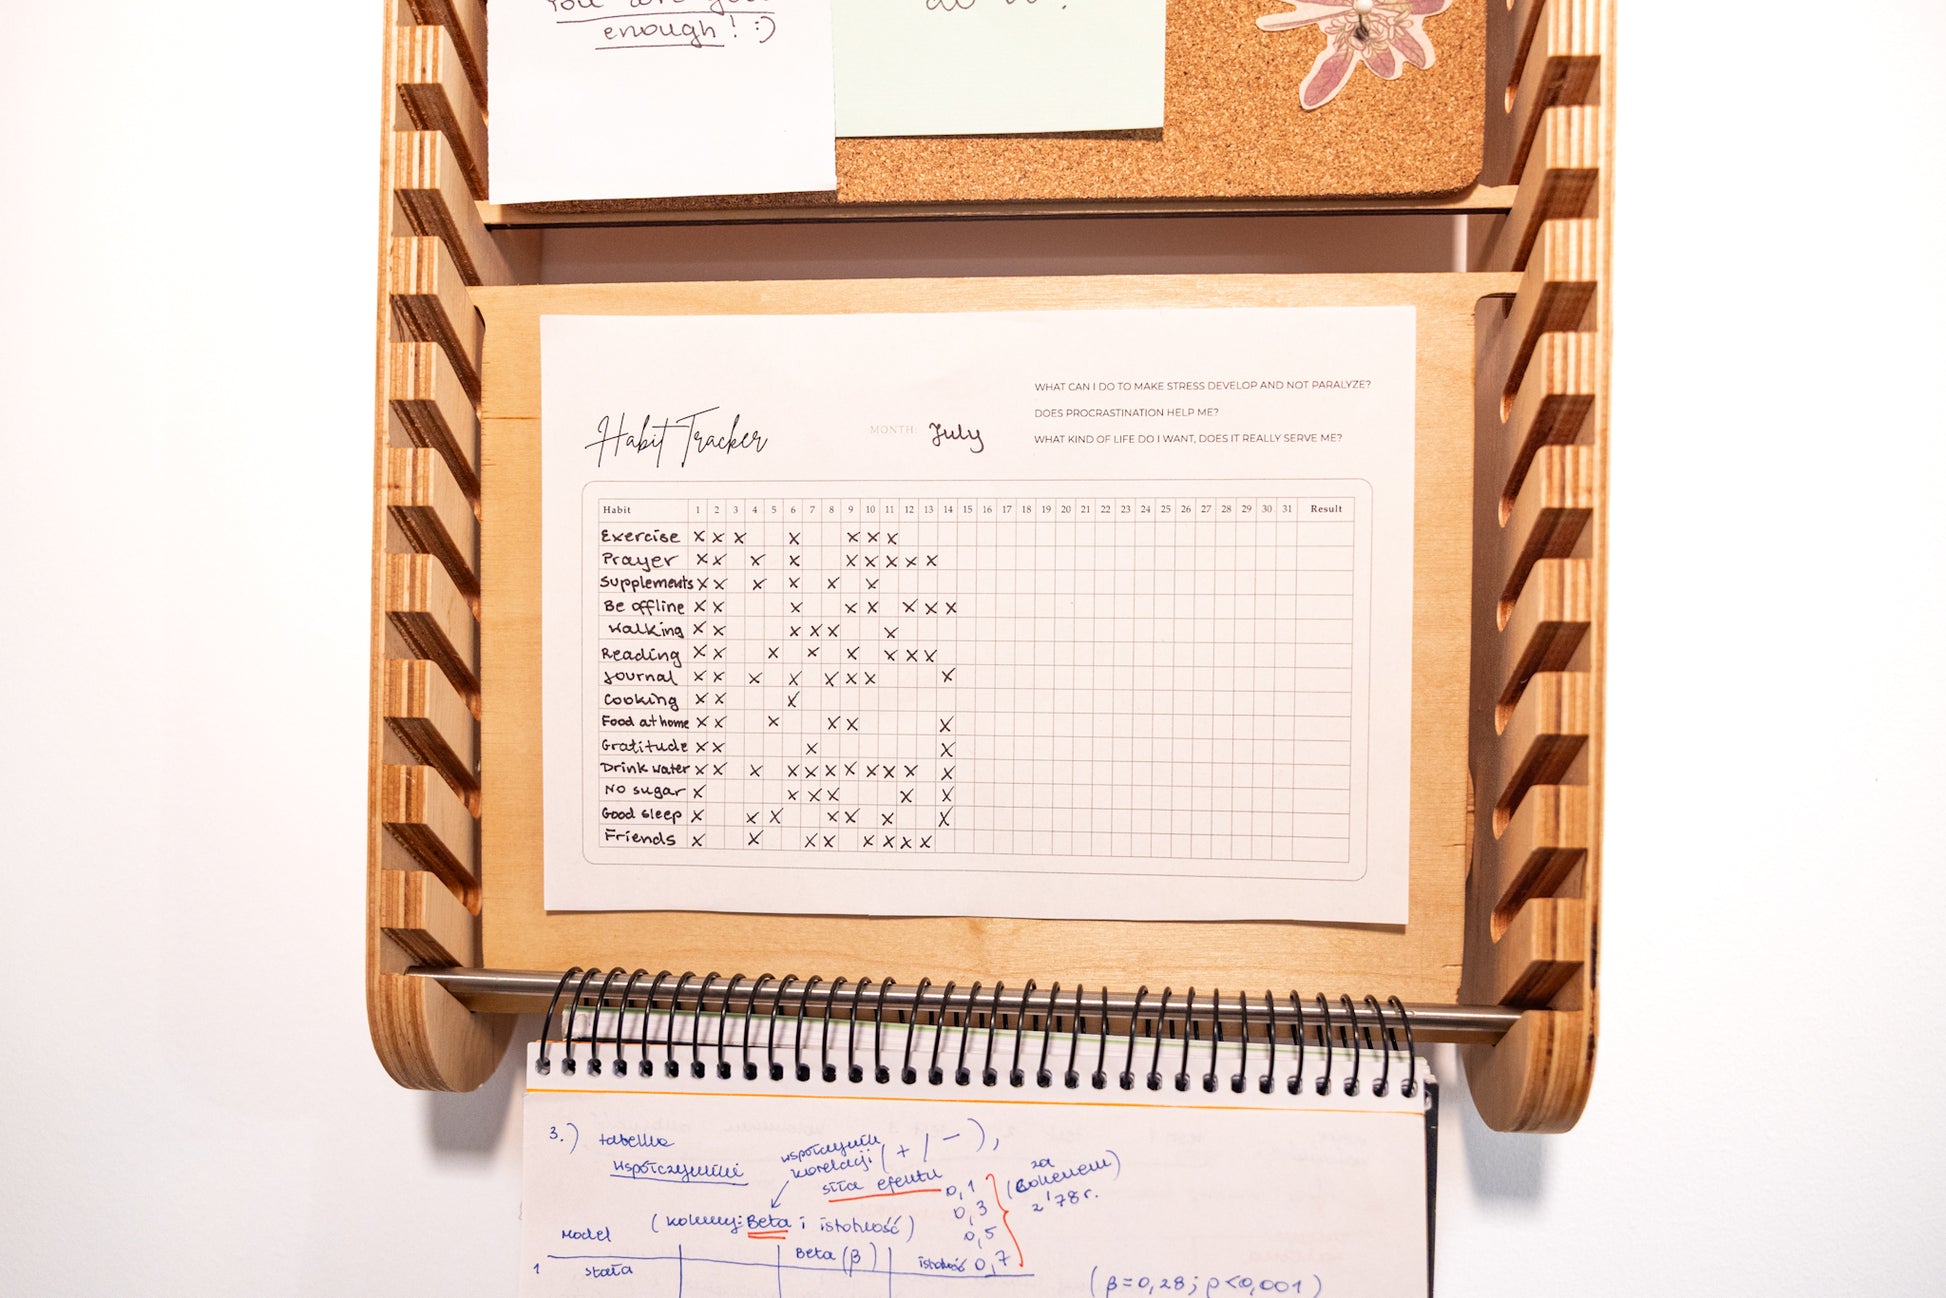 You are
enough! :)
Habit Tracker
MONTH: July
WHAT CAN I DO TO MAKE STRESS DEVELOP AND NOT PARALYZE?
DOES PROCRASTINATION HELP ME?
WHAT KIND OF LIFE DO I WANT, DOES IT REALLY SERVE ME?
Habit 1 2 3 4 5 6 7 8 9 10 11 12 13 14 15 16 17 18 19 20 21 22 23 24 25 26 27 28 29 30 31 Result
Exercise x x x x x x x
Prayer x x x x x x x x x
Supplements x x x x x x
Be offline x x x x x x x x
Walking x x x x x x
Reading x x x x x x x x
Journal x x x x x x x x
Cooking x x x
Food at home x x x x x x
Gratitude x x x x
Drink water x x x x x x x x x x x
No sugar x x x x x x
Good sleep x x x x x x x
Friends x x x x x x x x
3.) tabelka
współczynniki
współczynnik
korelacji (+/-),
siła efektu
0,1
0,3
0,5
0,7
(za
Cohenem)
(kolumny: Beta i istotność)
Model
Beta (β)
istotność
1 stała
(β=0,28; p<0,001)